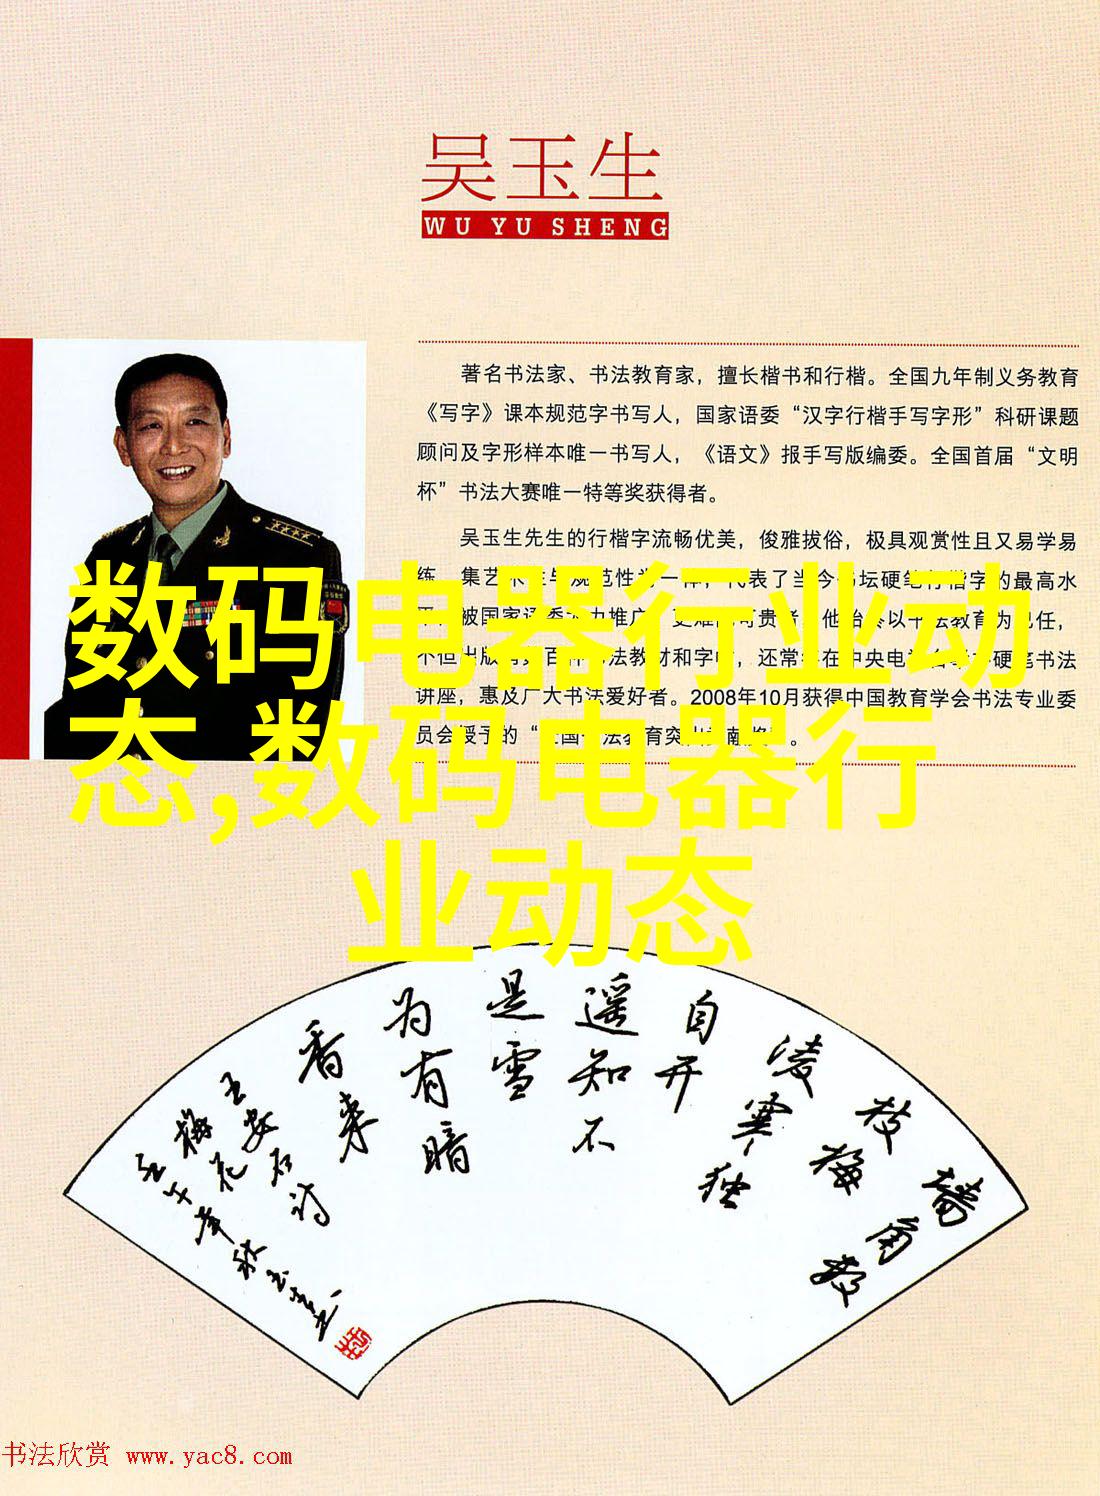 吴玉生
WU YU SHENG
著名书法家、书法教育家,擅长楷书和行楷。全国九年制义务教育
《写字》课本规范字书写人,国家语委“汉字行楷手写字形”科研课题
顾问及字形样本唯一书写人,《语文》报手写版编委。全国首届“文明
杯”书法大赛唯一特等奖获得者。
吴玉生先生的行楷字流畅优美,俊雅拔俗,极具观赏性且又易学易
练,集艺术性与规范性为一体,代表了当今书坛硬笔行楷字的最高水
被国家语委 力推广 更难 可贵者,他始终以书法教育为己任,
不但出版 百 书法教材和字帖,还常年在中央电视 硬笔书法
讲座,惠及广大书法爱好者。2008年10月获得中国教育学会书法专业委
员会授予的“全国书法教育突出贡献奖”。
数码电器行业动
态,数码电器行
业动态
墙角数
枝梅
凌寒独
自开
遥知不
是雪
为有暗
香来
王安石诗
梅花
壬午年秋玉生书
书法欣赏 www.yac8.com